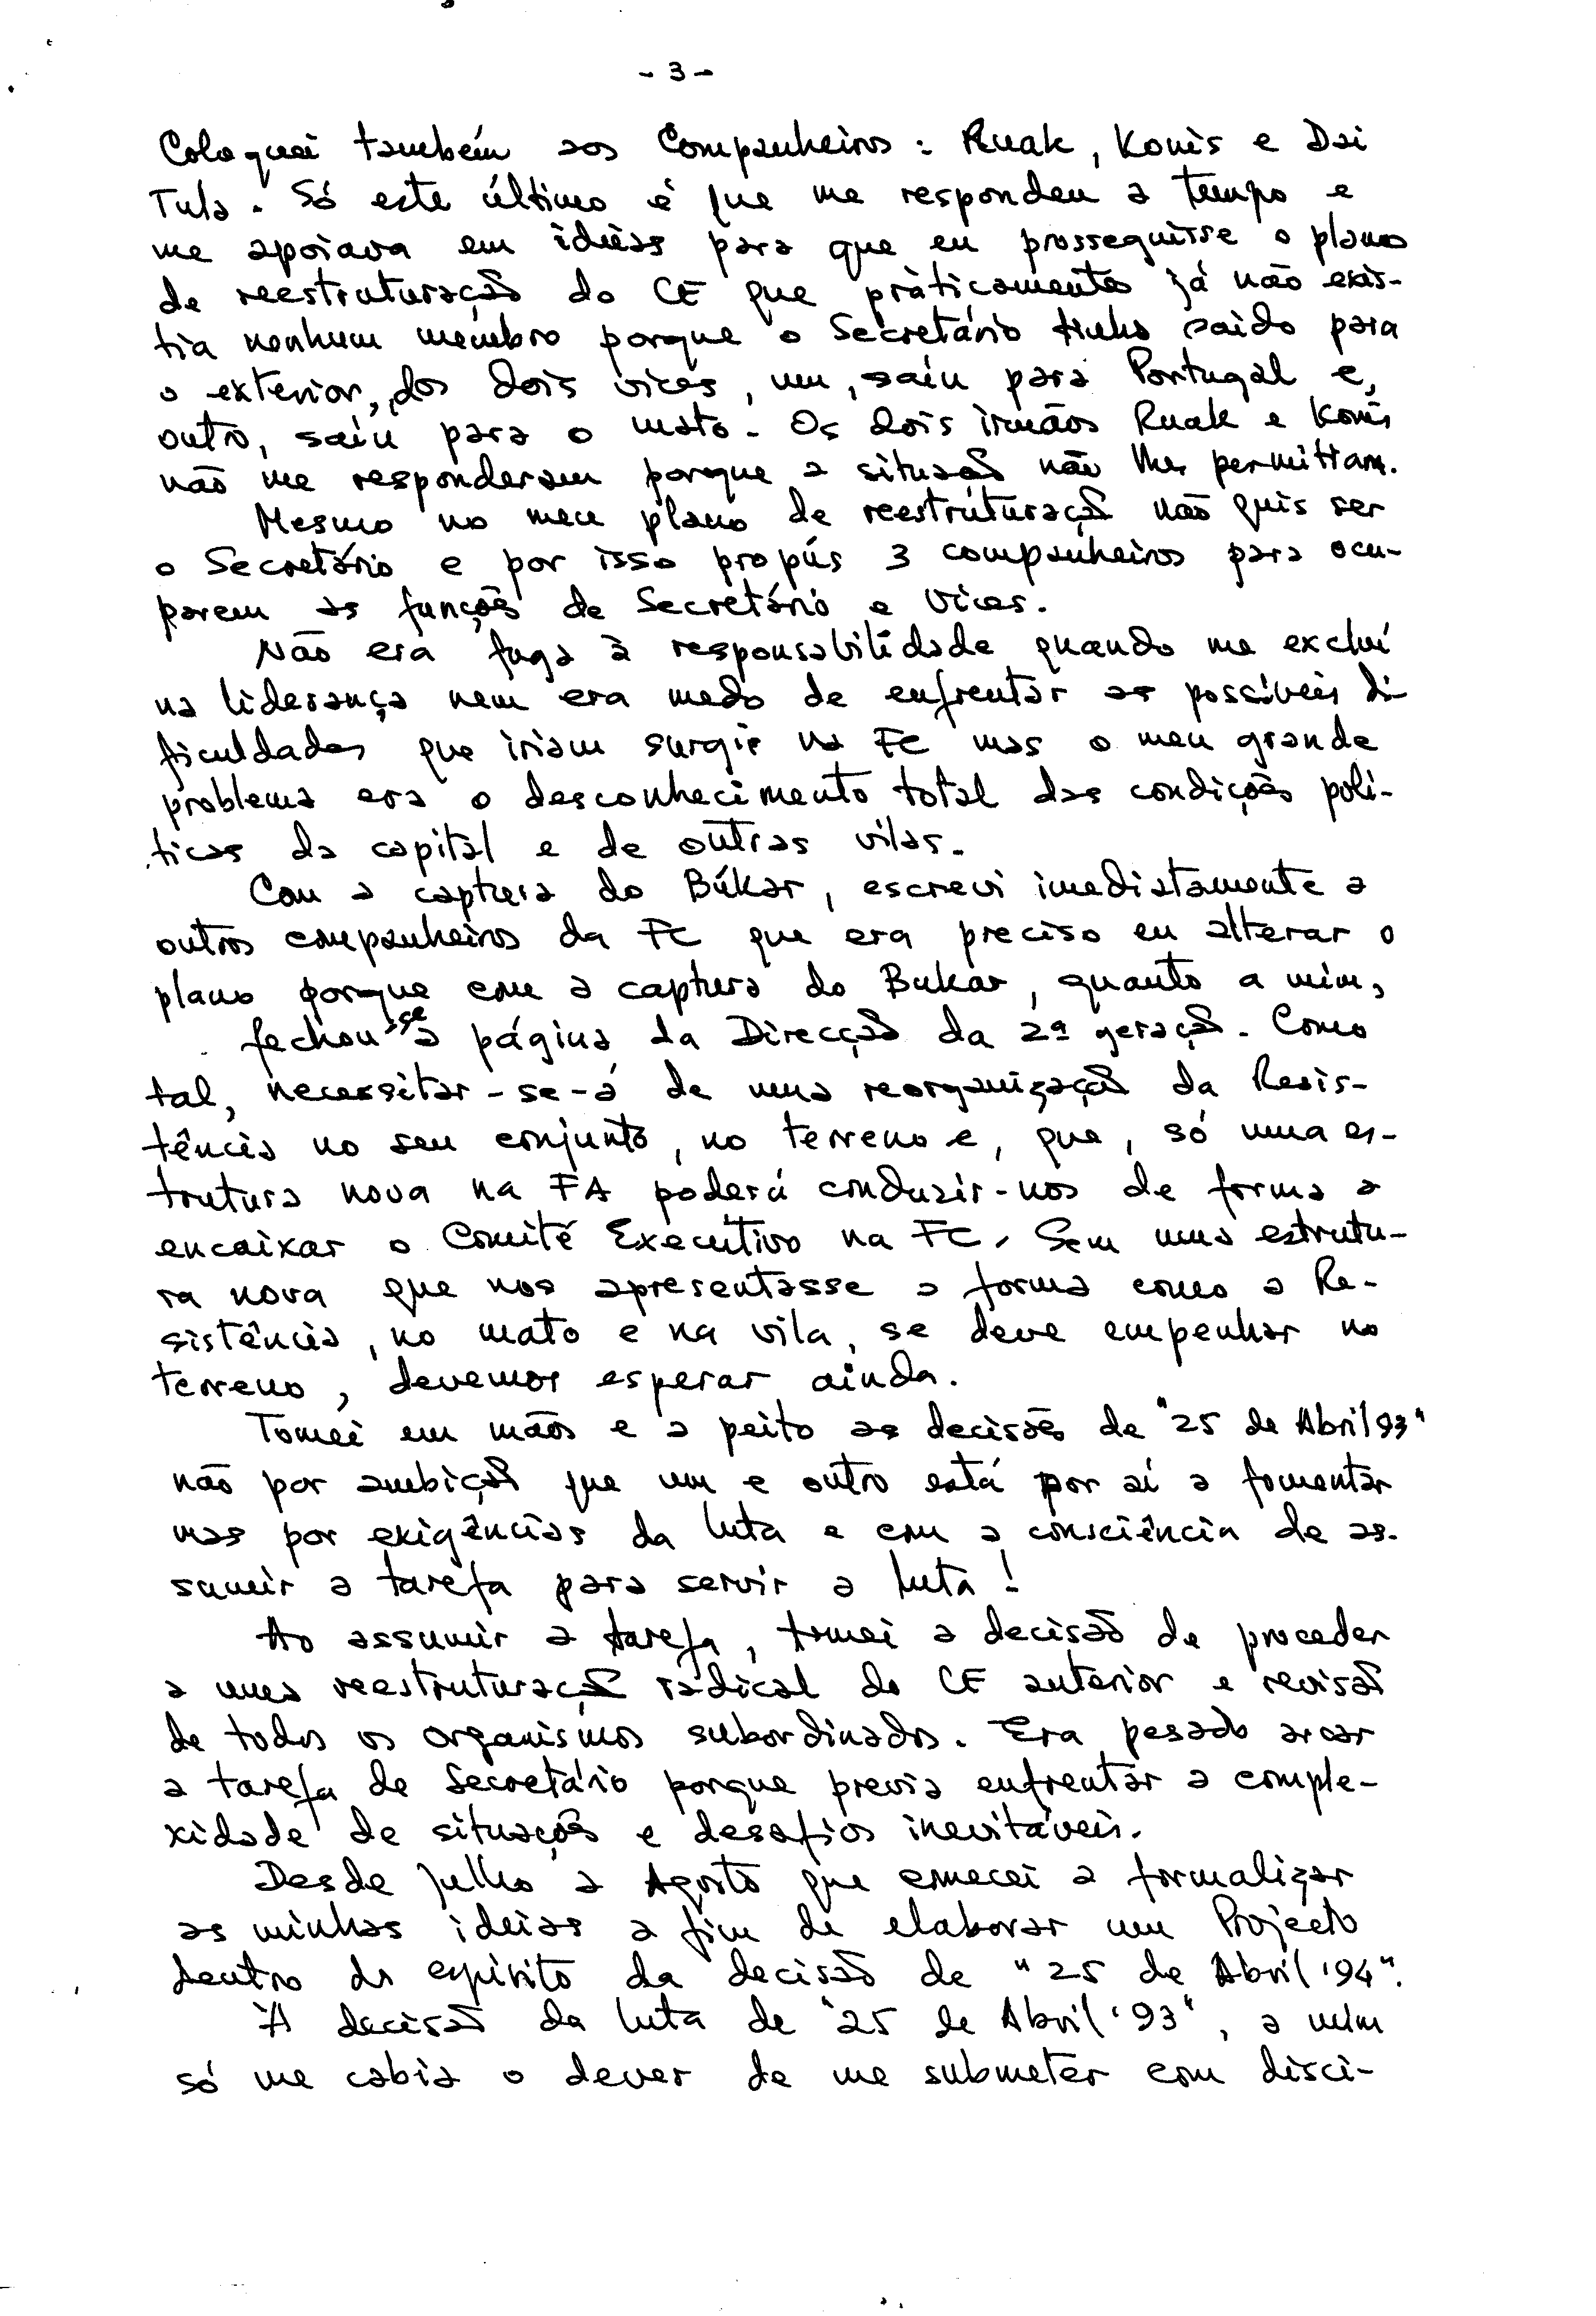 - 3 -
Coloquei também aos Companheiros: Ruak, Konis e Dai
Tula. Só este último é que me respondeu a tempo e
me apoiava em ideias para que eu prosseguisse o plano
de reestruturação do CE que pràticamente já não exis-
tia nenhum membro porque o Secretário tinha saido para
o exterior, dos dois vices, um, saíu para Portugal e,
outro, saíu para o mato. Os dois irmãos Ruak e Konis
não me responderam porque a situação não lhes permittam.
Mesmo no meu plano de reestruturação não quis ser
o Secretário e por isso propús 3 companheiros para ocu-
parem as funções de Secretário e Vices.
Não era fuga à responsabilidade quando me excluí
na liderança nem era medo de enfrentar as possíveis di-
ficuldades que iriam surgir na FC mas o meu grande
problema era o desconhecimento total das condições polí-
ticas da capital e de outras vilas.
Com a captura do Búkar, escrevi imediatamente a
outros companheiros da FC que era preciso eu alterar o
plano porque com a captura do Bukar, quanto a mim,
fechou-se a página da Direcção da 2ª geração. Como
tal, necessitar-se-á de uma reorganização da Resis-
tência no seu conjunto, no terreno e, que, só uma es-
trutura nova na FA poderá conduzir-nos de forma a
encaixar o Comité Executivo na FC. Sem uma estrutu-
ra nova que nos apresentasse a forma como a Re-
sistência, no mato e na vila, se deve empenhar no
terreno, devemos esperar ainda.
Tomei em mãos e a peito as decisões de "25 de Abril 93"
não por ambição que um e outro está por aí a fomentar
mas por exigências da luta e com a consciência de as-
sumir a tarefa para servir a luta!
Ao assumir a tarefa, tomei a decisão de proceder
a uma reestruturação radical do CE anterior e revisão
de todos os organismos subordinados. Era pesado arcar
a tarefa de Secretário porque previa enfrentar a comple-
xidade de situações e desafios inevitáveis.
Desde Julho a Agosto que comecei a formalizar
as minhas ideias a fim de elaborar um Projecto
dentro do espírito da decisão de "25 de Abril '94".
À decisão da luta de "25 de Abril '93", a mim
só me cabia o dever de me submeter com disci-